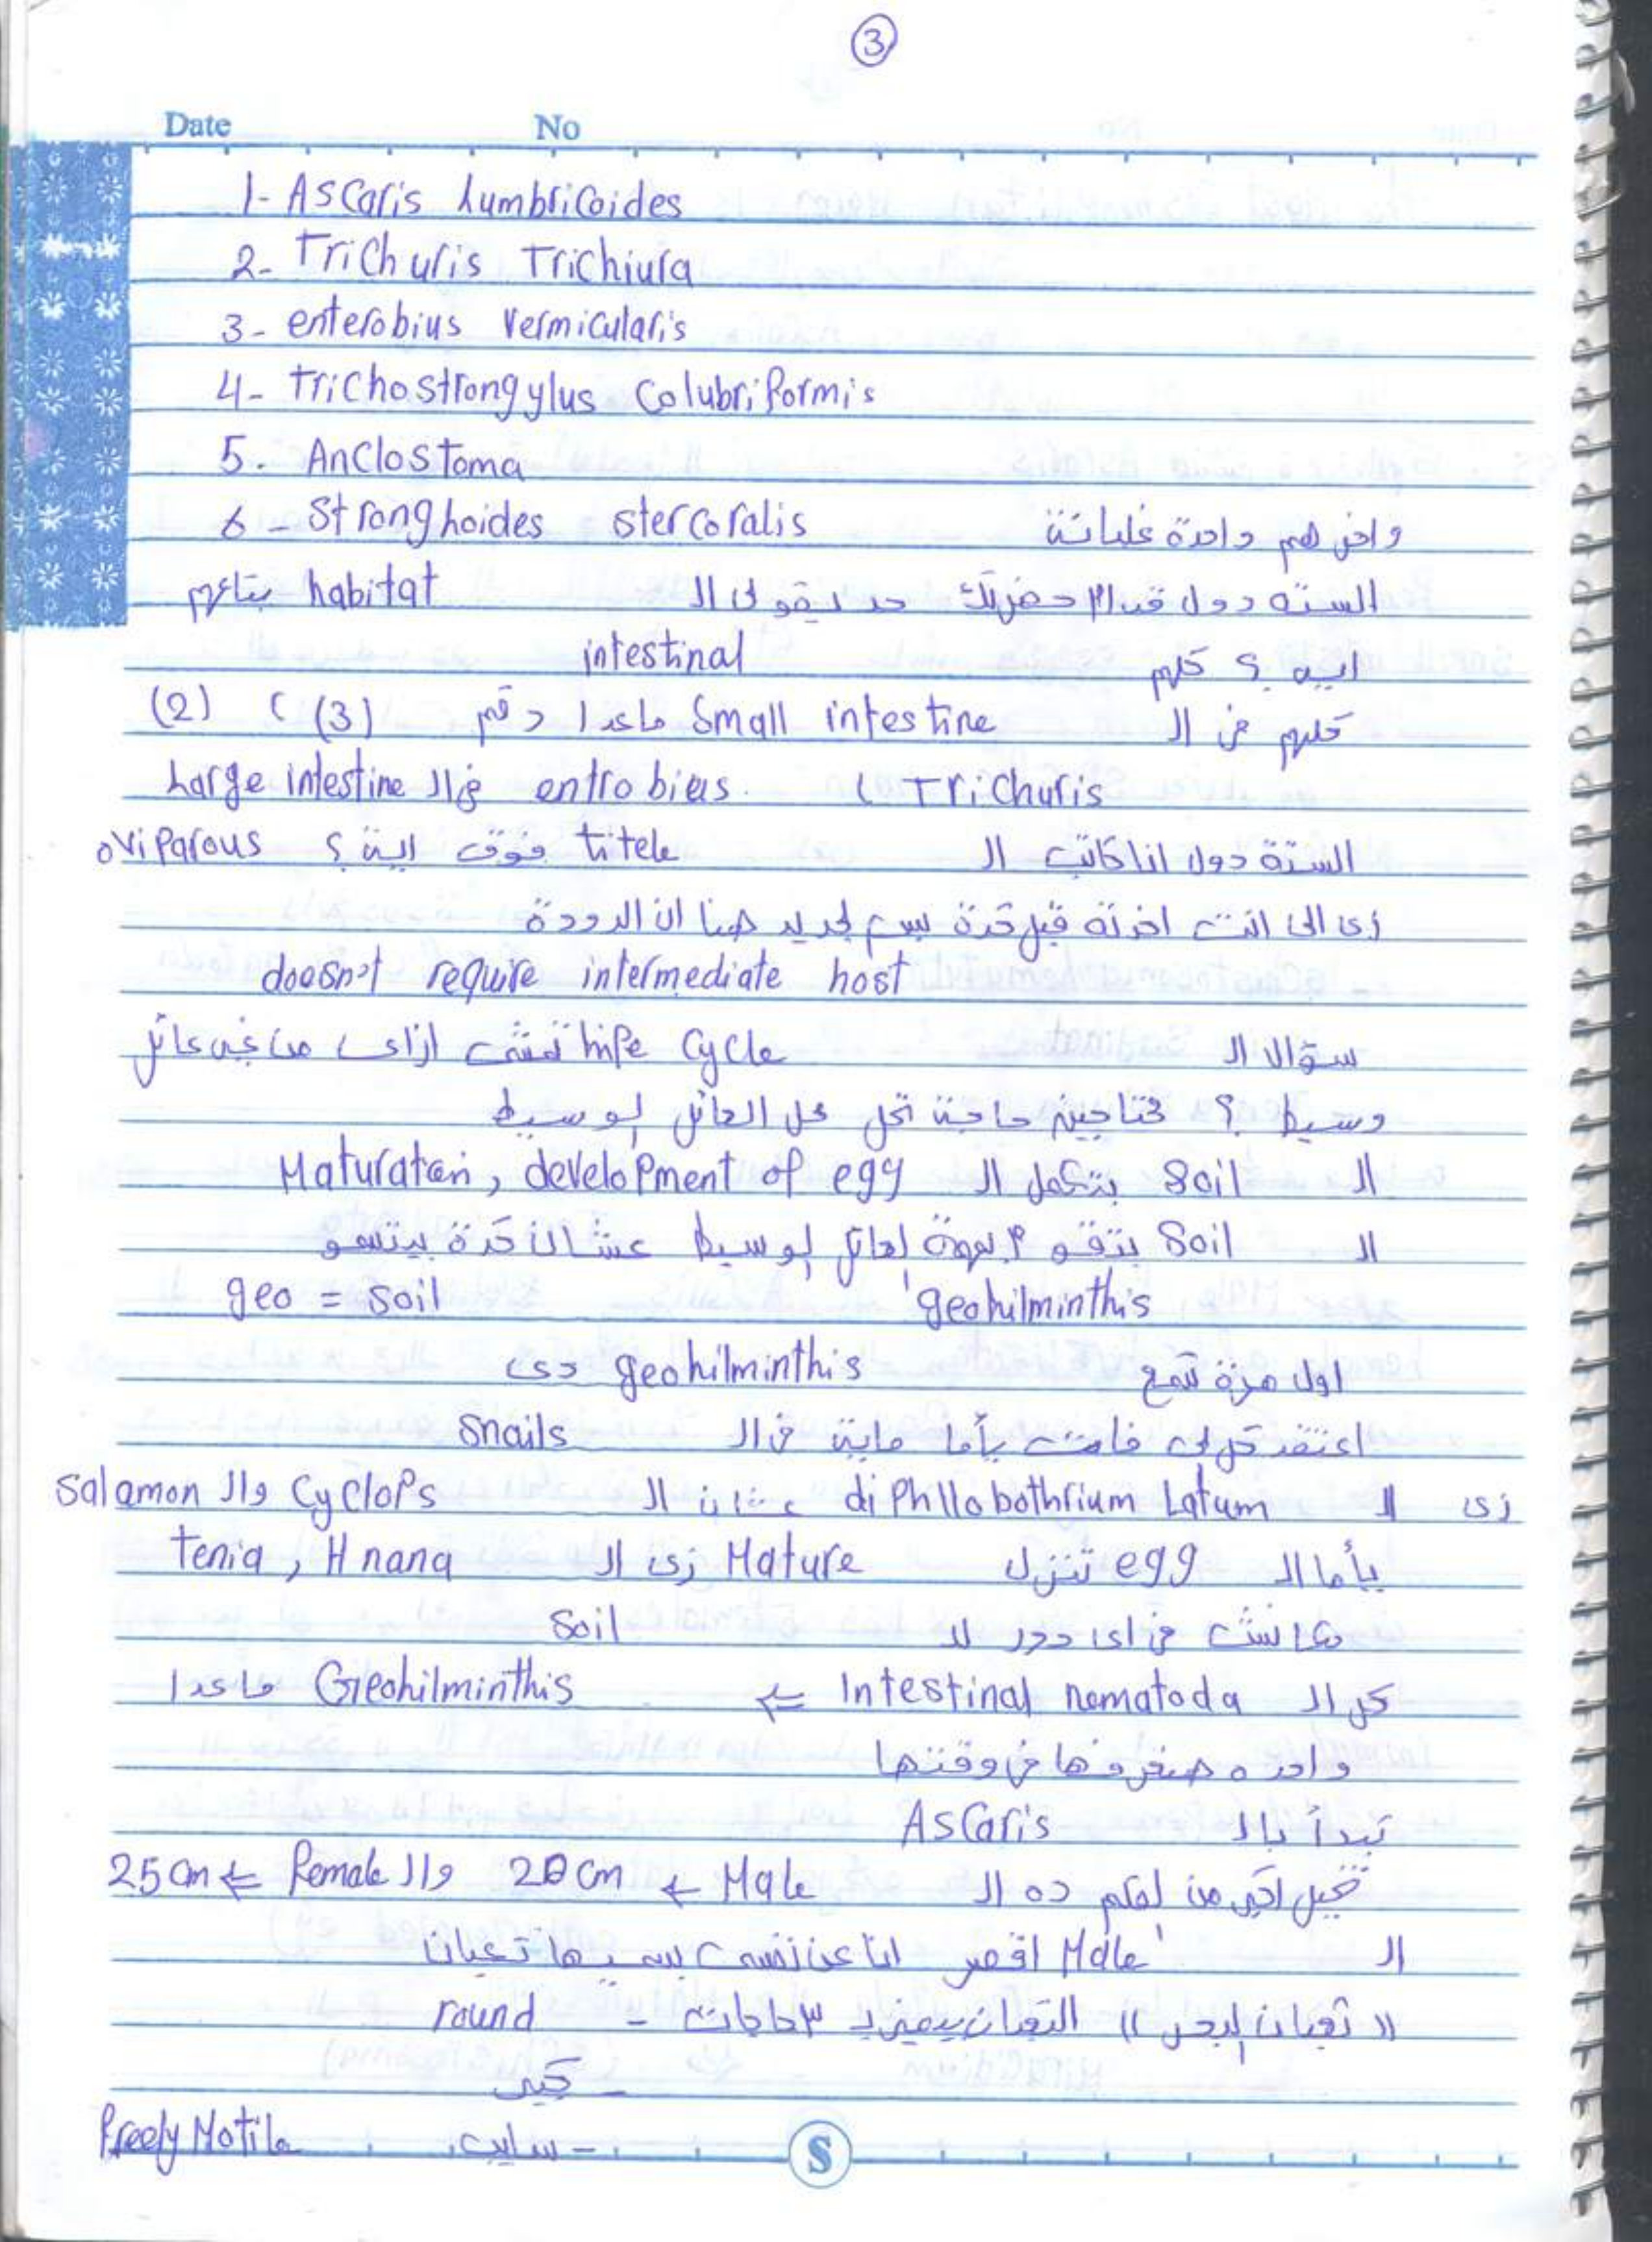 3
Date No
1- Ascaris Lumbricoides
2- Trichuris Trichiura
3- enterobius Vermicularis
4- Trichostrongylus Colubriformis
5. Anclostoma
6- Strong hoides stercoralis واخر هم واحدة غلباتنة
الستة دول قدام حضرتك حد يقولى ال habitat بتاعهم
اية ؟ كلهم intestinal
كلهم فى ال Small intestine ماعدا رقم (3) ، (2)
Trichuris ، entrobius فى ال Large intestine
الستة دول انا كاتب ال titele فوق اية ؟ oviparous
زى الى انت اخدته قبل كدة بس الجديد هنا ان الدودة
doesn't require intermediate host
سؤال ال life cycle تمشى ازاى من غير عائل
وسيط ؟ محتاجين حاجة تحل محل العائل الوسيط
ال Soil بتكمل ال Maturation, development of egg
ال Soil بتقوم بمهمة العائل الوسيط عشان كدة بيتسمو
geohilminthis geo = soil
اول مرة تسمع geohilminthis دى
اعتقد كل فاتت يأما ماية فى ال snails
زى ال diphllobothrium Latum عشان ال Cyclops وال Salamon
يأما ال egg تنزل Mature زى ال Tenia, H nana
مكانش فى اى دور لل Soil
كل ال Intestinal nematoda ⇐ Geohilminthis ماعدا
واحده هنعرفها فى وقتها
نبدأ بال Ascaris
تخيل اكبر من القلم ده ال Male ← 20 cm وال Female ⇐ 25 cm
ال Male اقصر انا عن نفسى بسميها تعبان
" تعبان البحر " التعبان بيميز بـ ٣ حاجات - round
- كبير
- سايب، Freely Motile
S